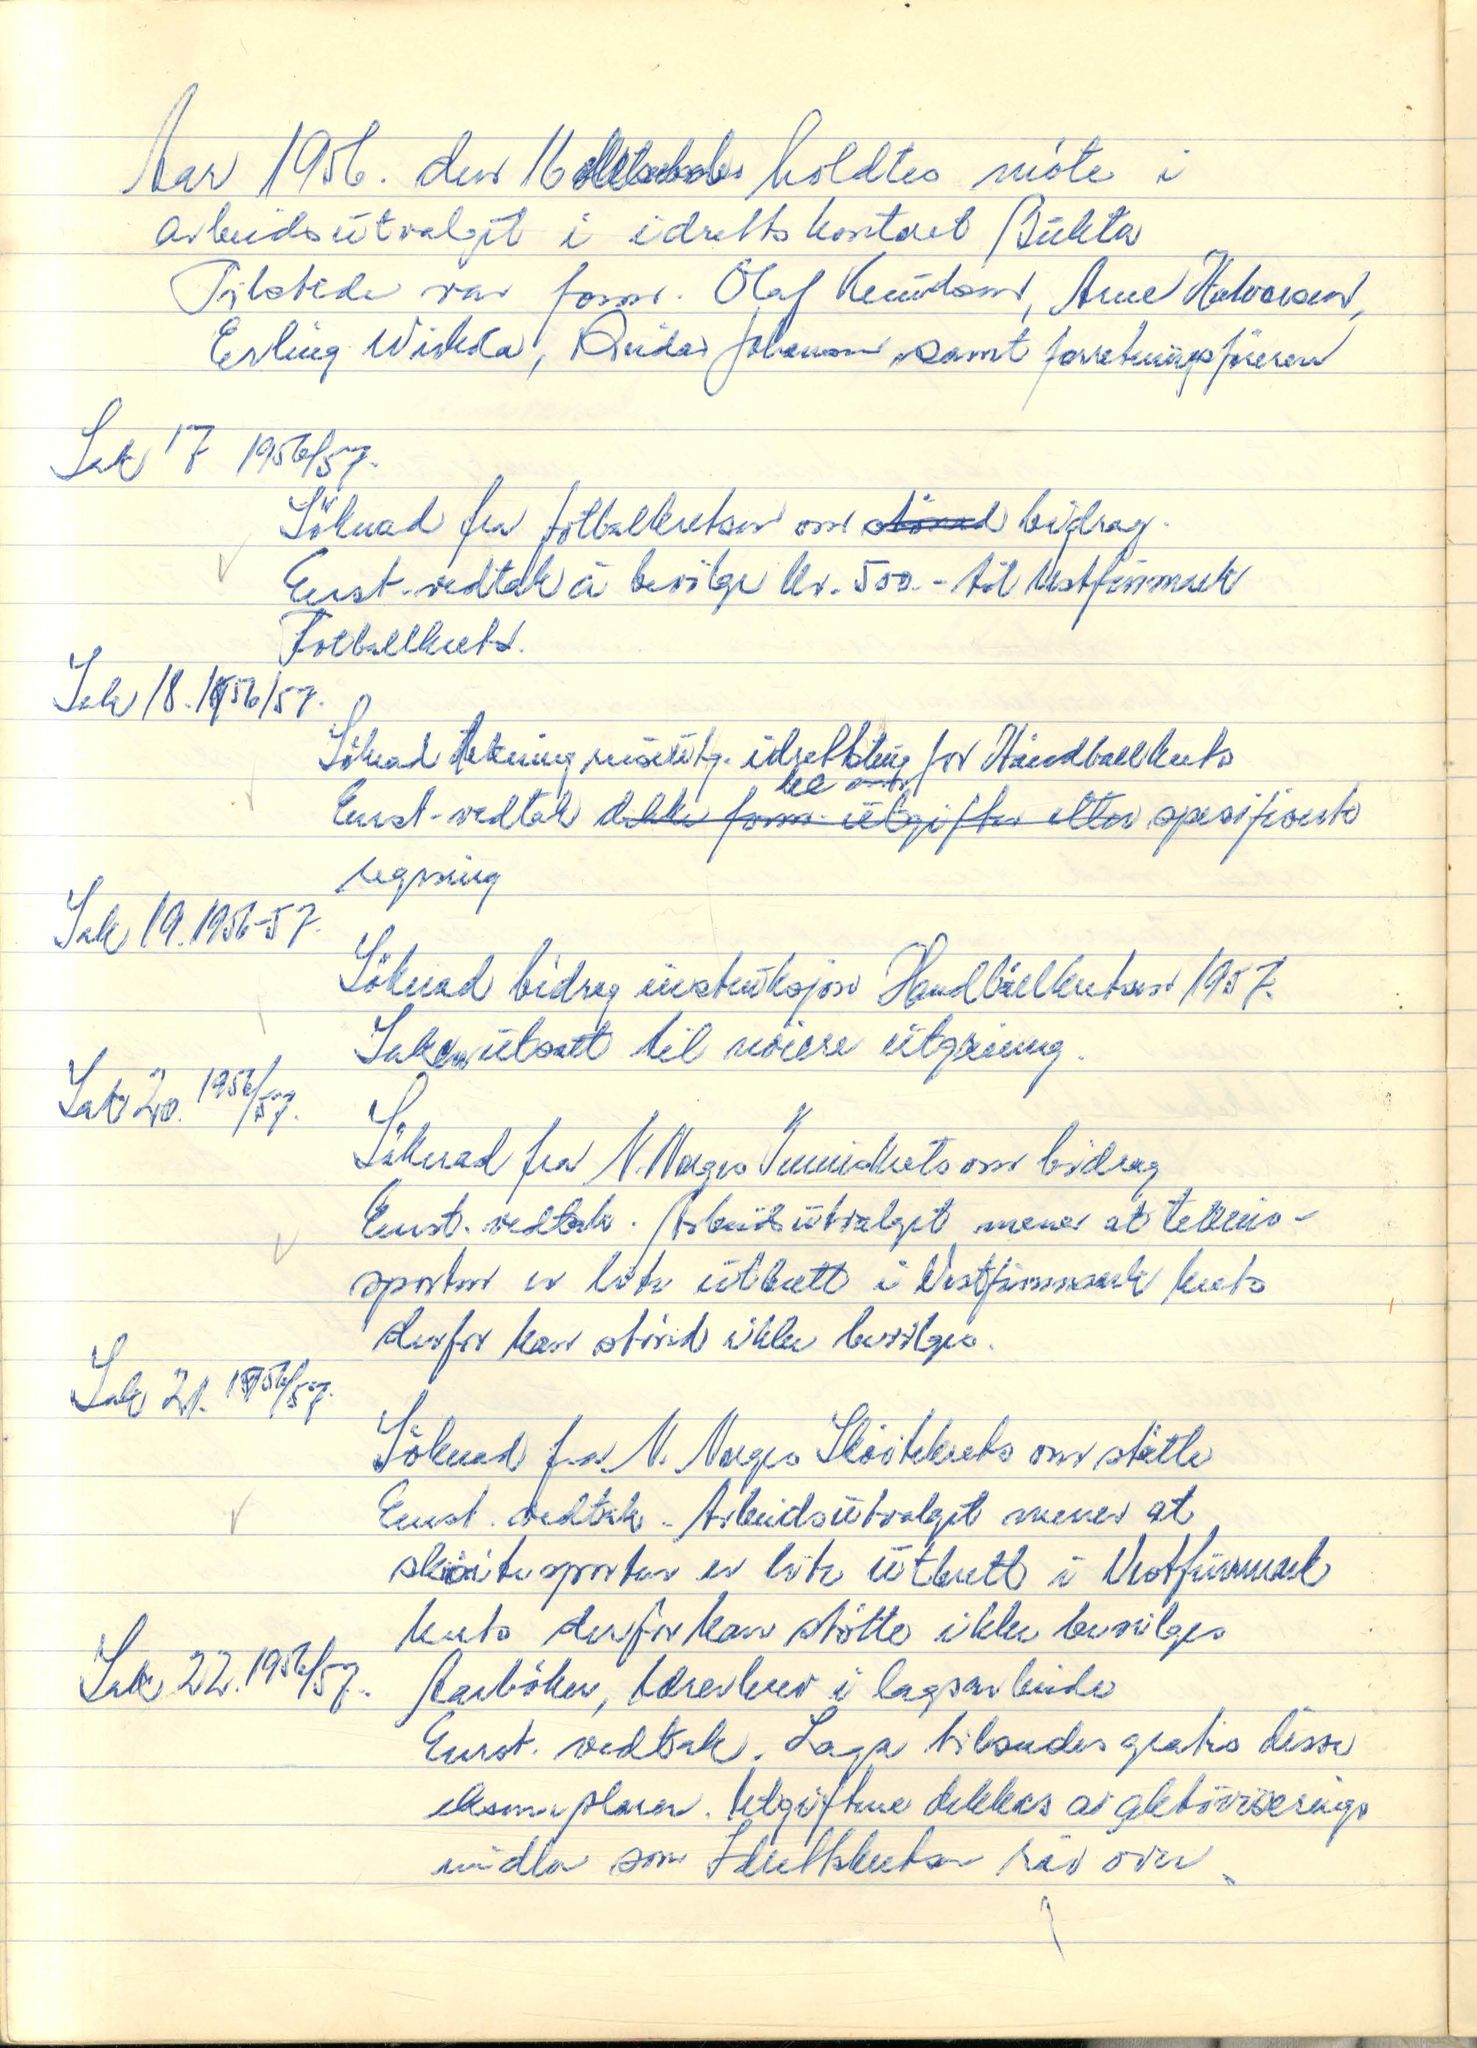 Aar 1956. den 16 oktober holdtes möte i
arbeidsutvalget i idrettskontoret Bukta
Tilstede var form. Olaf Knudsen, Arne Halvorsen,
Erling Wisløa, Reidar Johansen samt forretningsföreren
Sak 17 1956/57.
Söknad fra fotballkretsen om stönad bidrag.
Enst. vedtak å bevilge kr. 500.- til Vestfinnmark
Fotballkrets.
Sak 18. 1956/57.
Söknad dekning reiseutg. idrettsting for Håndballkrets
be om
Enst. vedtak dekke form. utgifter etter spesifiserte
regning
Sak 19. 1956-57.
Söknad bidrag instruksjon Handballkretsen 1957.
Saken utsatt til nöiere utgreiing.
Sak 20. 1956/57.
Söknad fra N. Norges Tenniskrets om bidrag
Enst. vedtak. Arbeidsutvalget mener at tennis-
sporten er lite utbrett i Vestfinnmark krets
derfor kan stönad ikke bevilges.
Sak 21. 1956/57.
Söknad fra N. Norges Sköitekrets om stötte
Enst. vedtak. Arbeidsutvalget mener at
sköitesporten er lite utbrett i Vestfinnmark
krets derfor kan stötte ikke bevilges
Sak 22. 1956/57. Aarböker, Lærebrev i lagsarbeide
Enst. vedtak. Laga tilsendes gratis disse
eksemplarer. Utgiftene dekkes av aktiviserings
midler som Idrettskretsen rår over.